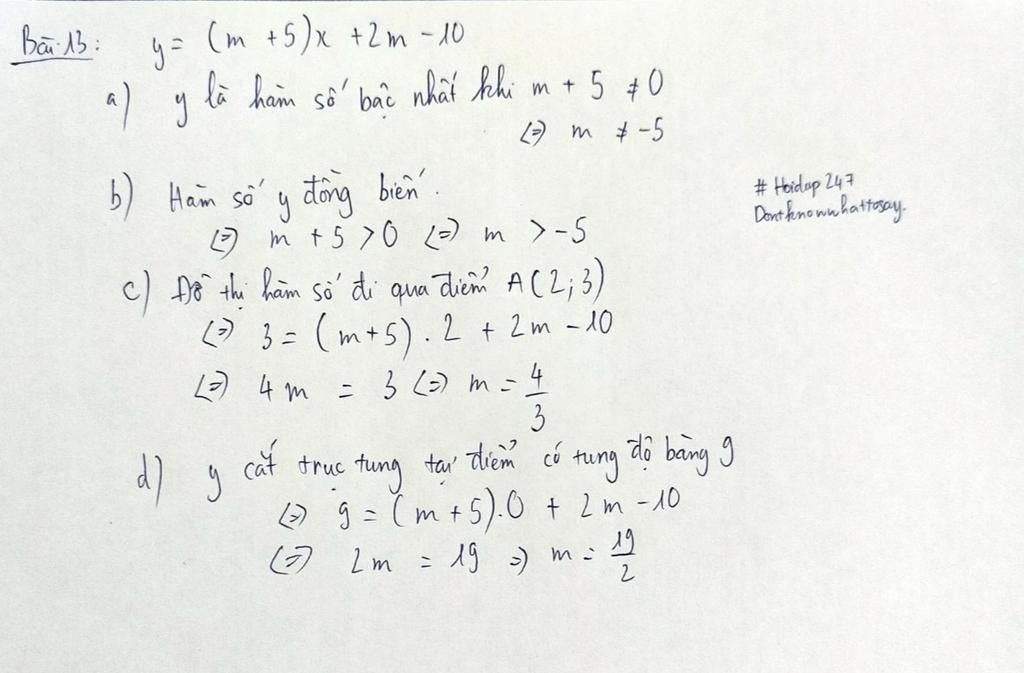 Bài 13: y = (m + 5)x + 2m - 10
a) y là hàm số bậc nhất khi m + 5 ≠ 0
⇔ m ≠ -5
b) Hàm số y đồng biến.
⇔ m + 5 > 0 ⇔ m > -5
# Hoidap247
Dontknowwhattosay.
c) Đồ thị hàm số đi qua điểm A(2;3)
⇔ 3 = (m+5). 2 + 2m - 10
⇔ 4m = 3 ⇔ m = 4/3
d) y cắt trục tung tại điểm có tung độ bằng 9
⇔ 9 = (m+5).0 + 2m - 10
⇔ 2m = 19 ⇒ m = 19/2